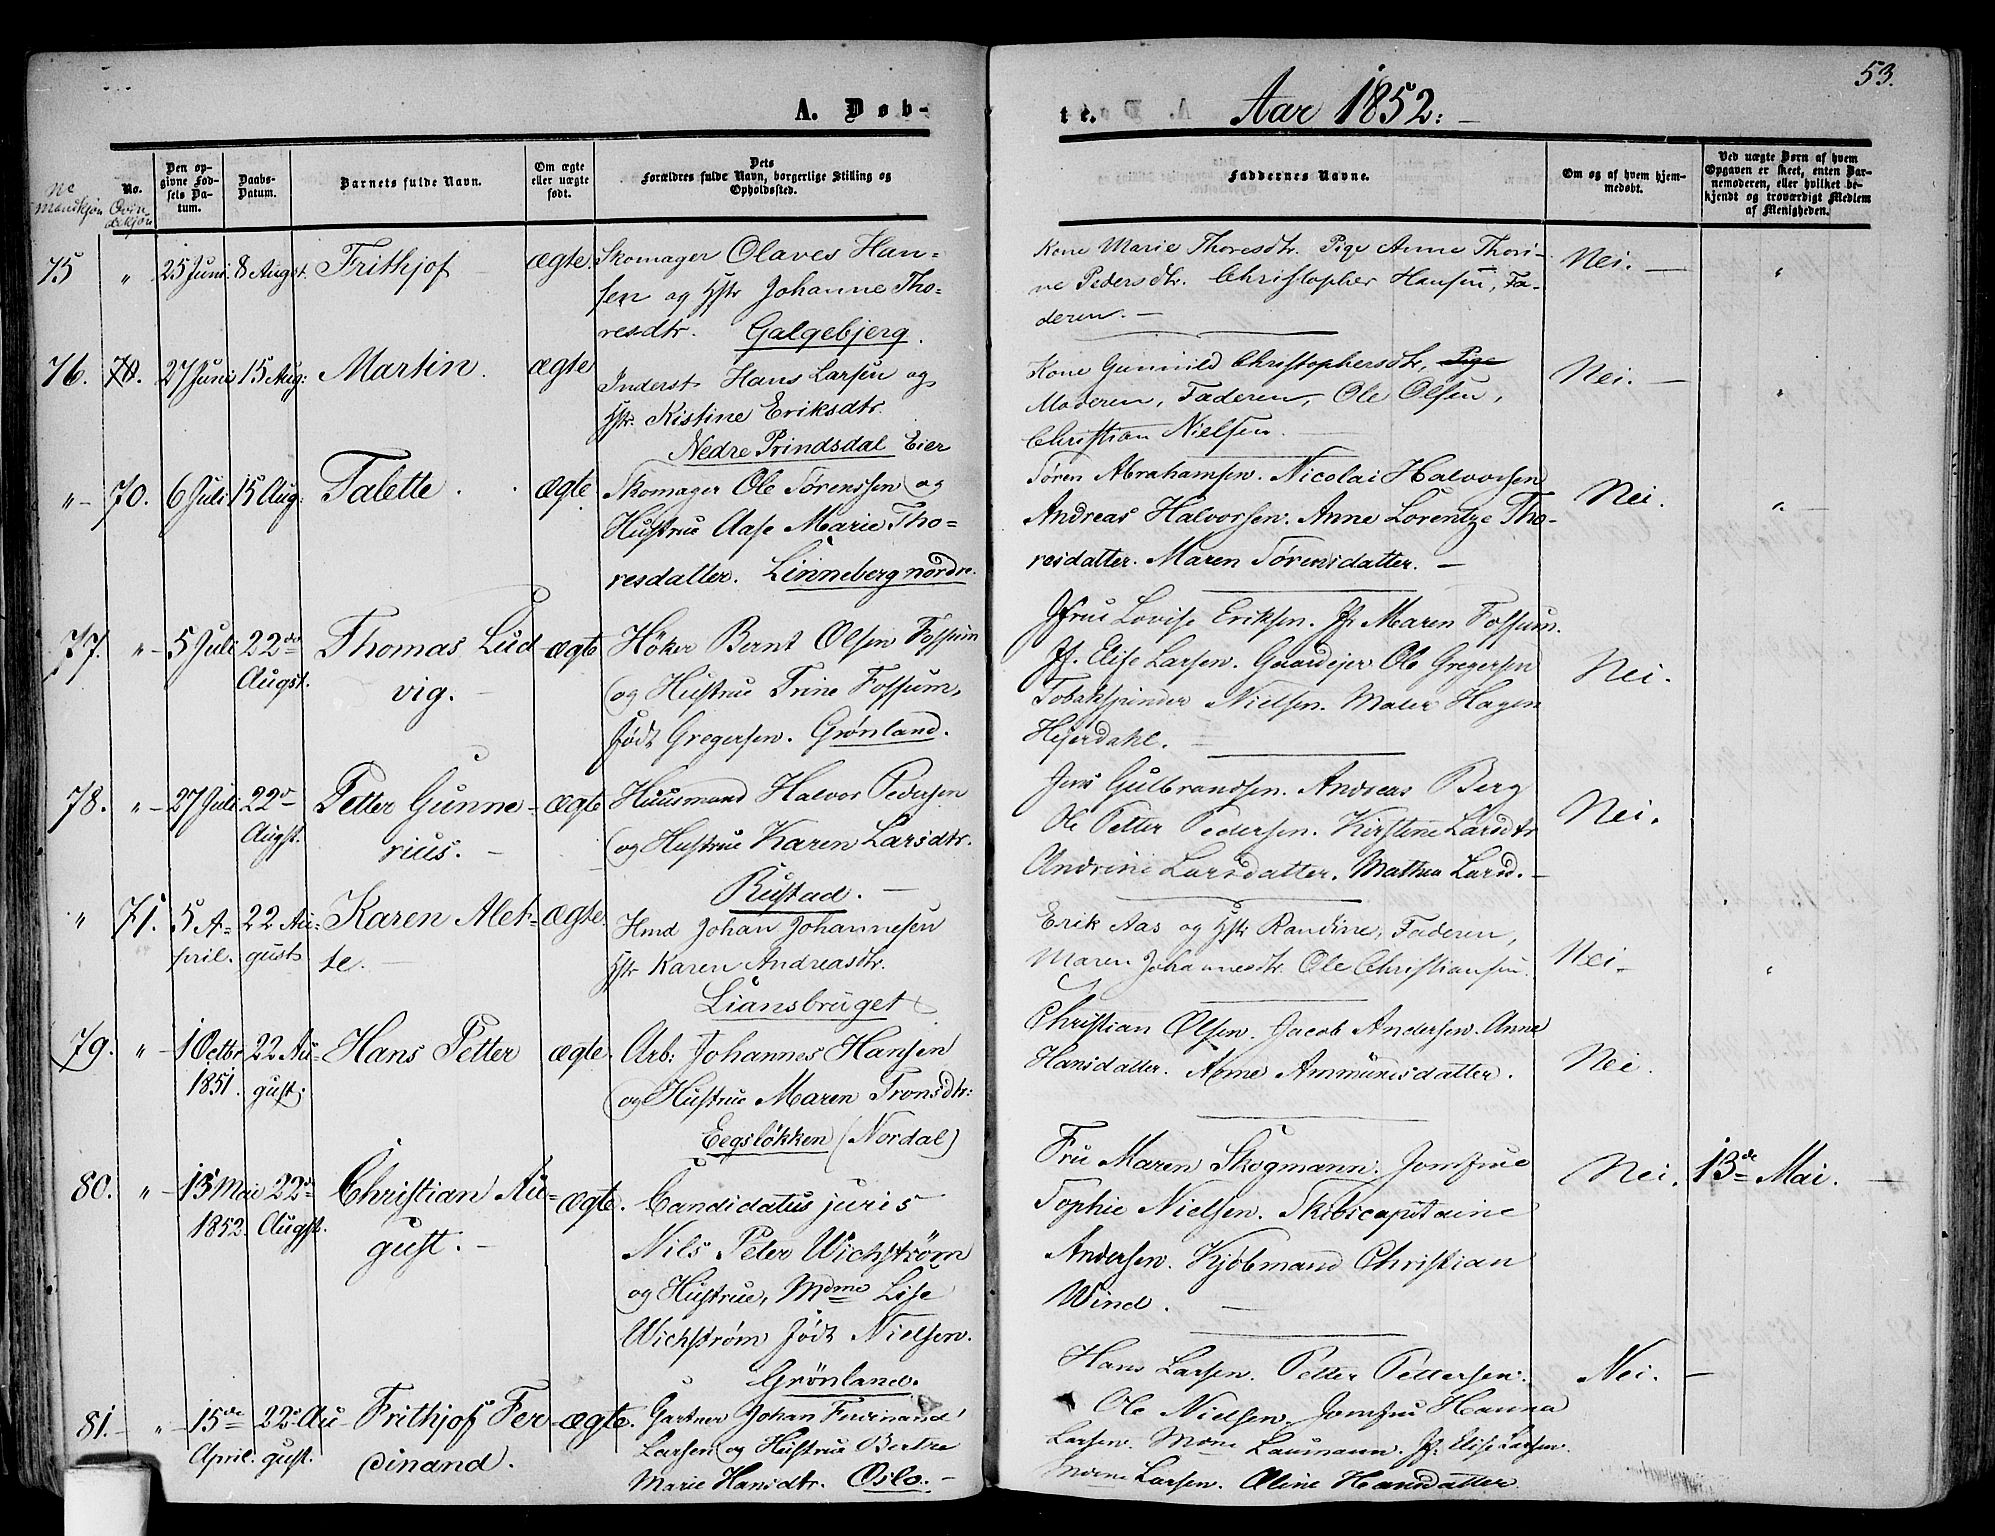 53.
A. Døb-
te.
Aar 1852:
No
Mandkjøn
No.
Qvin
dekjøn
Den op-
givne Fød-
sels Da-
tum.
Daabs-
Datum.
Barnets fulde Navn.
Om ægte
eller uægte
født.
Dets
Forældres fulde Navn, borgerlige Stilling og
Opholdssted.
Faddernes Navne.
Om og af hvem hjem-
medøbt.
Ved uægte Børn af hvem
Opgaven er skeet, enten Bar-
nemoderen, eller hvilket be-
kjendt og troværdigt Medlem
af Menigheden.
75 " 25 Juni 8 Augst. Frithjof ægte. Skomager Olaves Han-
sen og Hstr Johanne Tho-
resdtr. Galgebjerg.
Kone Marie Thoresdtr. Pige Anne Thori-
ne Pedersdtr. Christopher Hansen, Fa-
deren. —
Nei. — "
76. 70. 27 Juni 15 Aug: Martin. ægte Inderst Hans Larsen og
Hstr. Kistine Eriksdtr.
Nedre Prindsdal Eier
Kone Gunnild Christophersdtr, Pige
Moderen, Faderen, Ole Olsen,
Christian Nielsen.
Nei. — "
"- 70. 6 Juli 15 Aug: Talette. ægte Skomager Ole Sørenssen og
Hustrue Aase Marie Tho-
resdatter. Linneberg nordre.
Søren Abrahamsen. Nicolai Halvorsen
Andreas Halvorsen. Anne Lorentze Tho-
resdatter. Maren Sørensdatter. —
Nei. "
77. "- 5 Juli 22de
Augst. Thomas Lud
vig. — ægte Höker Bernt Olsen Fossum
og Hustrue Trine Fossum,
født Gregersen. Grønland.
Jfrue Lovise Eriksen. Jf. Maren Fossum.
Jf. Elise Larsen. Gaardejer Ole Gregersen
Tobakspinder Nielsen. Maler Hagen
Hejerdahl. —
Nei.
78. "- 27 Juli 22de
Augst. Petter Gunne-
rius. — ægte Huusmand Halvor Pedersen
og Hustrue Karen Larsdtr.
Rustad. —
Jens Gulbrandsen. Andreas Berg
Ole Petter Pedersen. Kirstine Larsdtr
Andrine Larsdatter. Mathea Larsd. —
Nei.
" 71. 5 A-
pril. 22 Au-
gust Karen Alet-
te. — ægte. Hmd Johan Johannesen
Hstr Karen Andreasdtr.
Liansbruget
Erik Aas og Hstr Randine, Faderen,
Maren Johannesdtr. Ole Christiansen.
Nei- "
79. "- 1 Octbr
1851. 22 Au-
gust: Hans Petter ægte. Arb: Johannes Hansen
og Hustrue Maren Tronsdtr:
Eegsløkken (Nordal)
Christian Olsen. Jacob Andersen. Anne
Hansdatter. Anne Ammunsdatter.
Nei.
80. "- 13 Mai
1852. 22de
Augst. Christian Au-
gust. — ægte. Candidatus juris
Nils Peter Wichstrøm
og Hustrue, Mdme Lise
Wichstrøm født Nielsen.
Grönland.
Fru Maren Skogmann. Jomfrue
Sophie Nielsen. Skibscapitaine
Andersen. Kjøbmand Christian
Wind. —
Nei. 13de Mai. —
81. — "- 15de
April. 22de Au
gust. Frithjof Fer-
dinand. ægte. Gartner Johan Ferdinand
Larsen og Hustrue Bertre
Marie Hansdtr. Oslo. —
Hans Larsen. Petter Pettersen.
Ole Nielsen. Jomfru Hanna
Larsen. Mdme Laumann. Jf. Elise Larsen.
Mdme Larsen. Oline Hansdatter
Nei. —